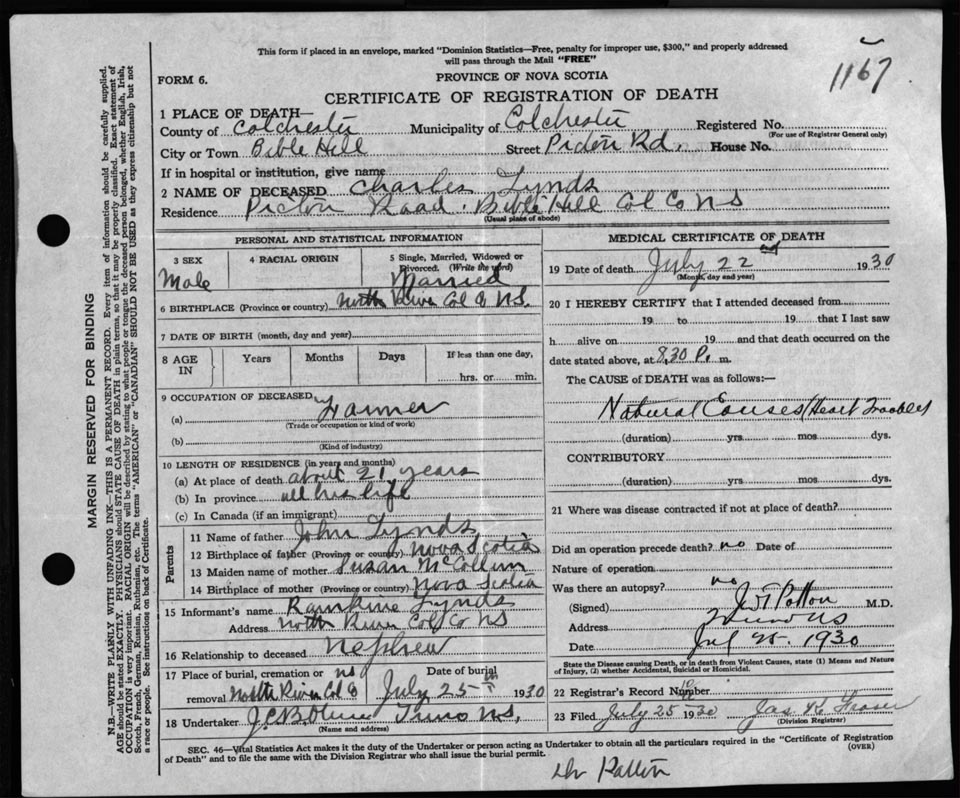 This form if placed in an envelope, marked "Dominion Statistics—Free, penalty for improper use, $300," and properly addressed
will pass through the Mail "FREE"
1167
FORM 6.
PROVINCE OF NOVA SCOTIA
CERTIFICATE OF REGISTRATION OF DEATH
1 PLACE OF DEATH—
County of Colchester Municipality of Colchester Registered No.
(For use of Registrar General only)
City or Town Bible Hill Street Pictou Rd. House No.
If in hospital or institution, give name
2 NAME OF DECEASED Charles Lynds
Residence Pictou Road. Bible Hill Col Co NS
(Usual place of abode)
MARGIN RESERVED FOR BINDING
N.B.—WRITE PLAINLY WITH UNFADING INK—THIS IS A PERMANENT RECORD. Every item of information should be carefully supplied.
AGE should be stated EXACTLY. PHYSICIANS should STATE CAUSE OF DEATH in plain terms, so that it may be properly classified. Exact statement of
OCCUPATION is very important. RACIAL ORIGIN will be described by stating to what people or tongue the deceased person belonged, whether English, Irish,
Scotch, French, German, Russian, Ruthenian, etc. The terms "AMERICAN" or "CANADIAN" SHOULD NOT BE USED as they express citizenship but not
a race or people. See instructions on back of Certificate.
PERSONAL AND STATISTICAL INFORMATION
3 SEX
Male
4 RACIAL ORIGIN
5 Single, Married, Widowed or
Divorced. (Write the word)
Married
6 BIRTHPLACE (Province or country) North River Col Co NS.
7 DATE OF BIRTH (month, day and year)
8 AGE IN
Years Months Days If less than one day,
hrs. or min.
9 OCCUPATION OF DECEASED
(a) Farmer
(Trade or occupation or kind of work)
(b)
(Kind of industry)
10 LENGTH OF RESIDENCE (in years and months)
(a) At place of death about 21 years
(b) In province all his life
(c) In Canada (if an immigrant)
Parents
11 Name of father John Lynds
12 Birthplace of father (Province or country) Nova Scotia
13 Maiden name of mother Susan McCollum
14 Birthplace of mother (Province or country) Nova Scotia
15 Informant's name Rankine Lynds
Address North River Col Co NS
16 Relationship to deceased Nephew
17 Place of burial, cremation or removal North River Col Co NS
Date of burial July 25th 1930
18 Undertaker Truro NS.
(Name and address)
MEDICAL CERTIFICATE OF DEATH
19 Date of death July 22nd 1930
(Month, day and year)
20 I HEREBY CERTIFY that I attended deceased from
19 to 19 that I last saw
h alive on 19 and that death occurred on the
date stated above, at 8.30 P. m.
The CAUSE of DEATH was as follows:—
Natural Causes (Heart Trouble)
(duration) yrs. mos. dys.
CONTRIBUTORY
(duration) yrs. mos. dys.
21 Where was disease contracted if not at place of death?
Did an operation precede death? no Date of
Nature of operation
Was there an autopsy? no
(Signed) Patton M.D.
Address Truro NS
Date Jul 25. 1930
State the Disease causing Death, or in death from Violent Causes, state (1) Means and Nature
of Injury, (2) whether Accidental, Suicidal or Homicidal.
22 Registrar's Record Number
23 Filed July 25 1930 Jas Fraser
(Division Registrar)
SEC. 46—Vital Statistics Act makes it the duty of the Undertaker or person acting as Undertaker to obtain all the particulars required in the "Certificate of Registration
of Death" and to file the same with the Division Registrar who shall issue the burial permit.
(OVER)
Dr Patton